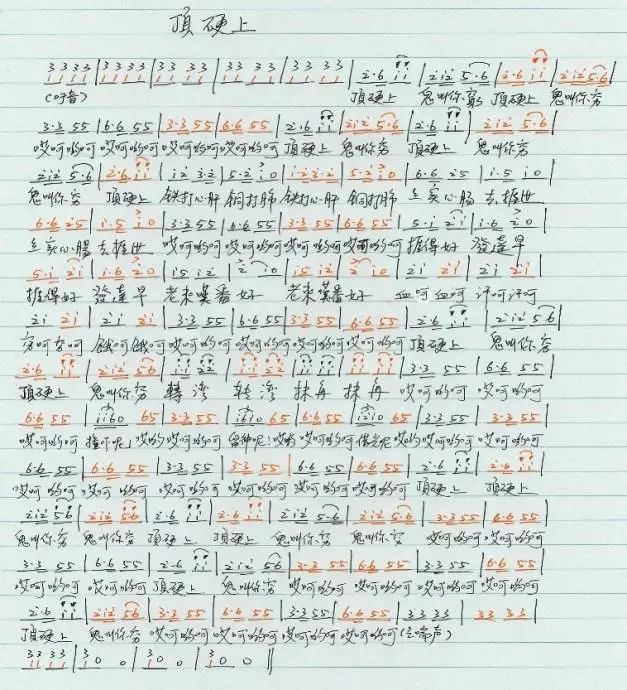 頂硬上
3 3 3 3 | 3 3 3 3 | 3 3 3 3 | 3 3 3 3 | 3 3 3 3 | 2·6 i i | 2i2 5·6 | 2·6 i i | 2i2 5·6 |
頂硬上 鬼叫你窮 頂硬上 鬼叫你穷
3·3 55 | 6·6 55 | 3·3 55 | 6·6 55 | 2·6 i i | 2i2 5·6 | 2·6 i i | 2i2 5·6 |
哎呵喲呵 哎呵喲呵 哎呵喲呵 哎呵喲呵 頂硬上 鬼叫你穷 頂硬上 鬼叫你穷
2i2 5·6 | 2·6 i i | i2 3·2 | 5·2 i 0 | i·2 3·2 | 5·2 i 0 | 6·6 25 | i·5 i 0 |
鬼叫你穷 頂硬上 鉄打心肝 銅打肺 鉄打心肝 銅打肺 立实心腸 去捱世
6·6 25 | i·5 i 0 | 3·3 55 | 6·6 55 | 3·3 55 | 6·6 55 | 5·i 2i | i·6 2 0 |
立实心腸 去捱世 哎呵喲呵 哎呵喲呵 哎呵喲呵 哎呵喲呵 捱得好 發達早
5·i 2i | i·6 2 0 | i5 i2 | 2 i 0 | i5 i2 | 2 i 0 | 2i 2i | 2i 2i |
捱得好 發達早 老來嘆番好 老來嘆番好 血呵血呵 汗呵汗呵
2i 2i | 2i 2i | 3·3 55 | 6·6 55 | 3·3 55 | 6·6 55 | 2·6 i i | 2i2 5·6 |
穷呵穷呵 餓呵餓呵 哎呵喲呵 哎呵喲呵 哎呵喲呵 哎呵喲呵 頂硬上 鬼叫你穷
2·6 i i | 2i2 5·6 | i i 22 | i i 22 | i i i i | i i i i | 3·3 55 | 6·6 55 |
頂硬上 鬼叫你穷 轉灣 轉灣 抹角 抹角 哎呵喲呵 哎呵喲呵
6·6 55 | i i 6 0 65 | 3·3 55 | i 6 i 0 65 | 6·6 55 | i 2 i 0 65 | 3·3 55 | 3·3 55 |
哎呵喲呵 哎喲 哎呵喲呵 哎喲 哎呵喲呵 哎喲 哎呵喲呵 哎呵喲呵
6·6 55 | 6·6 55 | 3·3 55 | 3·3 55 | 6·6 55 | 6·6 55 | 2·6 i i | 2·6 i i |
哎呵喲呵 哎呵喲呵 哎呵喲呵 哎呵喲呵 哎呵喲呵 哎呵喲呵 頂硬上 頂硬上
2i2 56 | 2i2 56 | 2·6 i i | 2·6 i i | 2i2 5·6 | 2i2 5·6 | 3·3 55 | 6·6 55 |
鬼叫你穷 鬼叫你穷 頂硬上 頂硬上 鬼叫你穷 鬼叫你穷 哎呵喲呵 哎呵喲呵
3·3 55 | 6·6 55 | 2·6 i i | 2i2 56 | 3·3 55 | 6·6 55 | 3·3 55 | 6·6 55 |
哎呵喲呵 哎呵喲呵 頂硬上 鬼叫你穷 哎呵喲呵 哎呵喲呵 哎呵喲呵 哎呵喲呵
2·6 i i | 2i2 56 | 3·3 55 | 6·6 55 | 3·3 55 | 6·6 55 | 3 3 3 3 | 3 3 3 3 |
頂硬上 鬼叫你穷 哎呵喲呵 哎呵喲呵 哎呵喲呵 哎呵喲呵
3 3 3 3 | 3 0 0 | 3 0 0 | 3 0 0 ‖